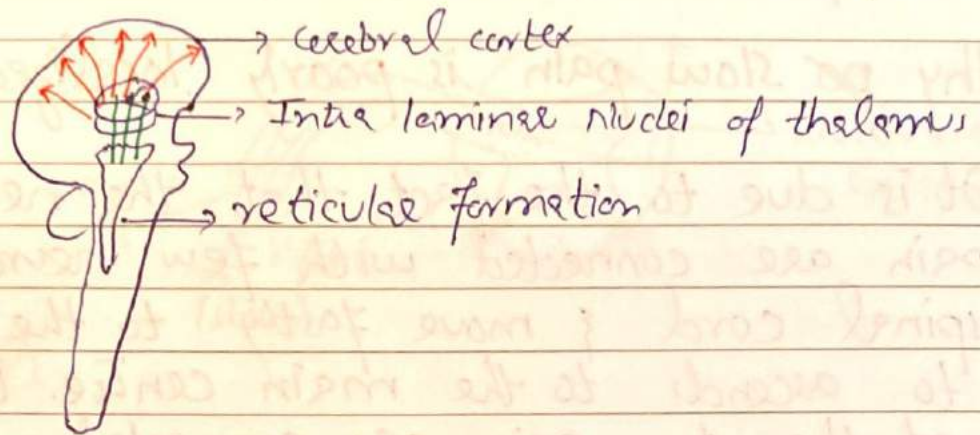 cerebral cortex
Intra laminar nuclei of thalamus
reticular formation